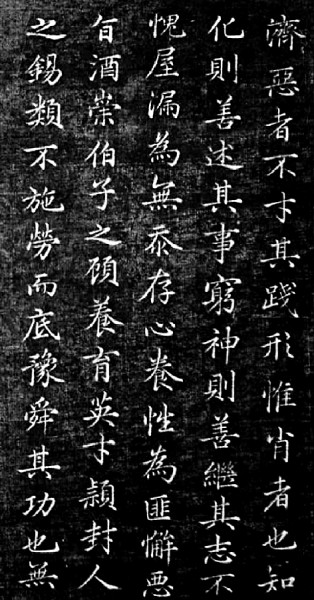 濟惡者不才其踐形惟肖者也知
化則善述其事窮神則善繼其志不
愧屋漏為無忝存心養性為匪懈惡
旨酒崇伯子之顧養育英才穎封人
之錫類不施勞而底豫舜其功也無